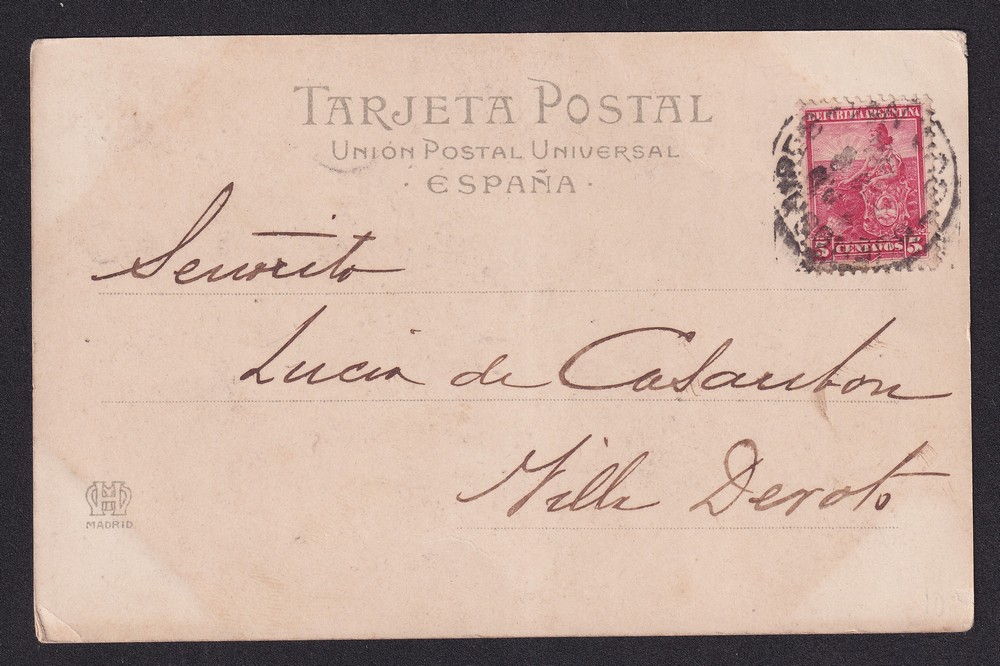 TARJETA POSTAL
UNIÓN POSTAL UNIVERSAL
· ESPAÑA ·
REPUBLICA ARGENTINA
5 CENTAVOS 5
Señorita
Lucia de Casaubon
Villa Devoto
MADRID